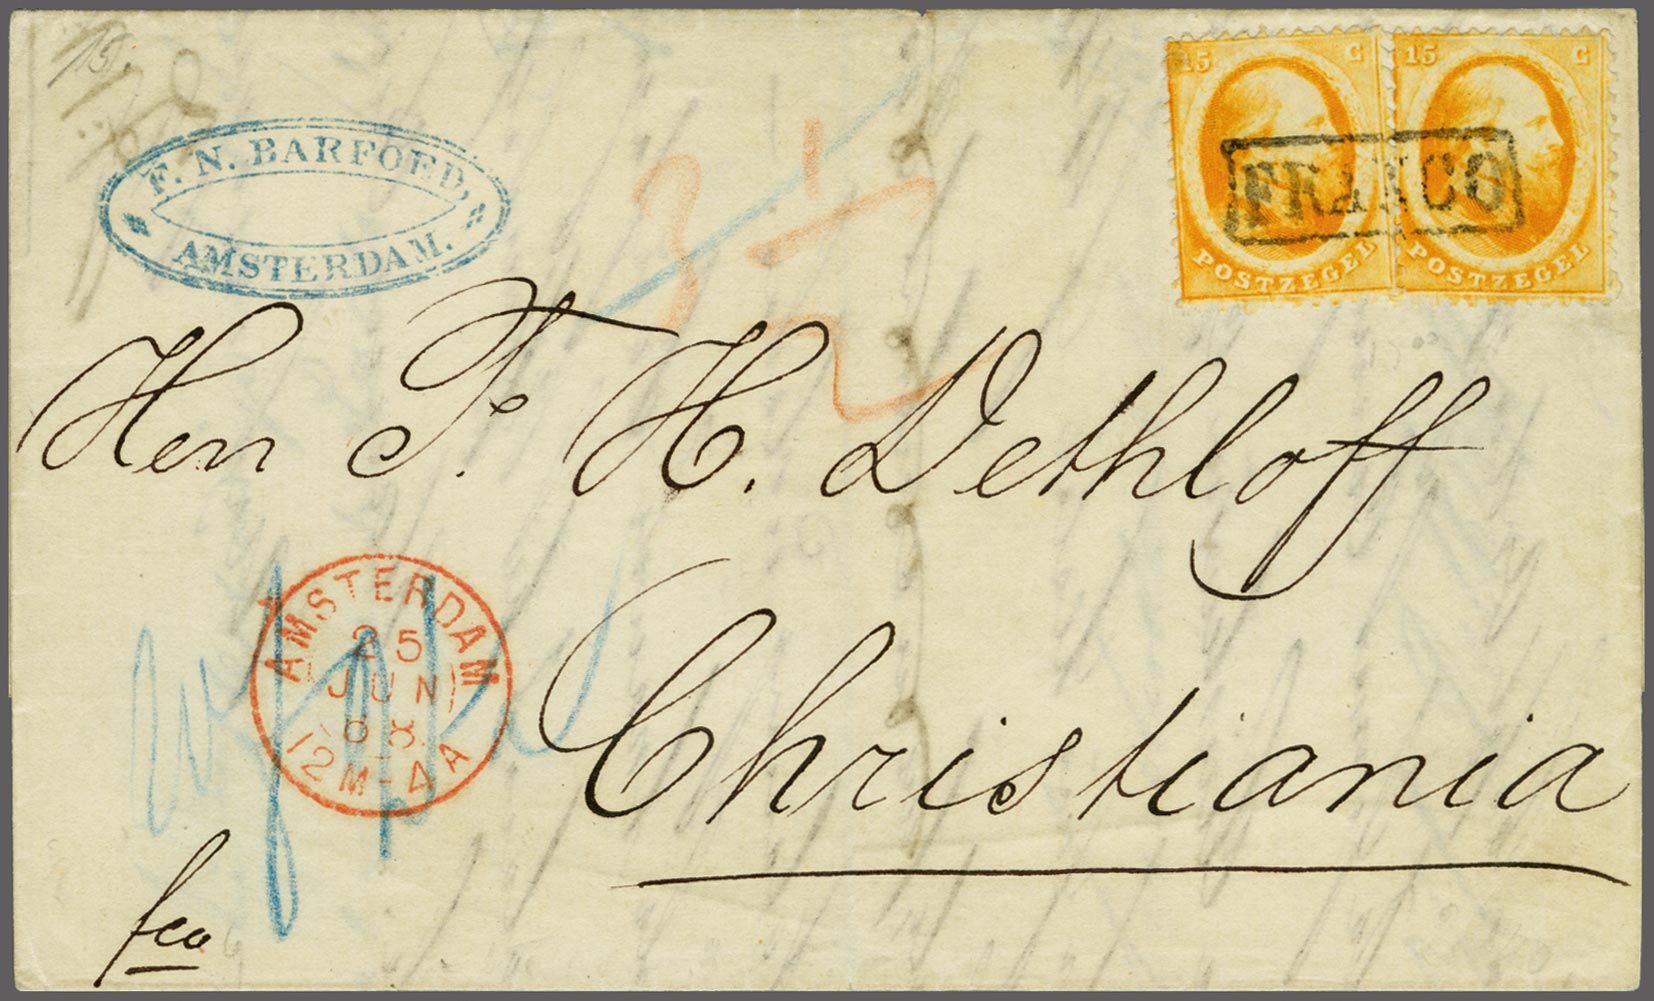 15.
F. N. BARFOED,
AMSTERDAM.
15 C
POSTZEGEL
15 C
POSTZEGEL
FRANCO
Herr F. H. Dethloff
Christiania
AMSTERDAM
25
JUN
68
12M-4A
fco